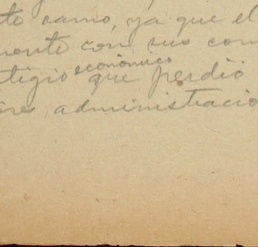 te ramo, ya que el
mente con sus com
tigio económico que perdió
res administracio